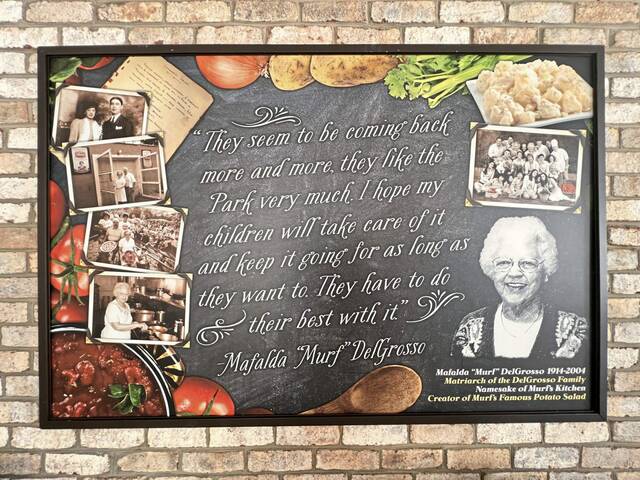 "They seem to be coming back
more and more, they like the
Park very much. I hope my
children will take care of it
and keep it going for as long as
they want to. They have to do
their best with it."
-Mafalda "Murf" DelGrosso
Mafalda "Murf" DelGrosso 1914-2004
Matriarch of the DelGrosso Family
Namesake of Murf's Kitchen
Creator of Murf's Famous Potato Salad